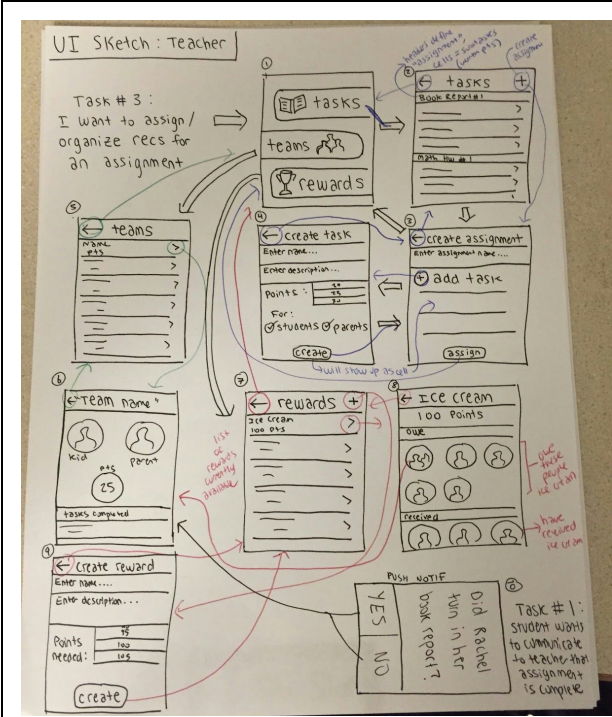 UI Sketch: Teacher
Task # 3:
I want to assign/
organize recs for
an assignment
①
tasks
teams
rewards
headers define
"assignment",
cells = subtasks
create
assignment
②
← tasks +
Book Report #1
Math HW #1
③
← create assignment
Enter assignment name....
+ add task
assign
④
← create task
Enter name...
Enter description...
Points:
For:
students parents
create
will show up as cell
⑤
← teams
Name
pts
⑥
← "Team name"
kid
parent
pts
25
tasks completed
⑦
← rewards +
Ice Cream
100 pts
list
of
rewards
currently
available
⑧
← Ice cream
100 Points
owe
owe
these
people
ice cream
received
have
received
ice cream
⑨
← create reward
Enter name....
Enter description...
Points
needed:
95
100
105
create
PUSH NOTIF
Did Rachel
turn in her
book report?
YES
NO
Task # 1:
student wants
to communicate
to teacher that
assignment
is complete